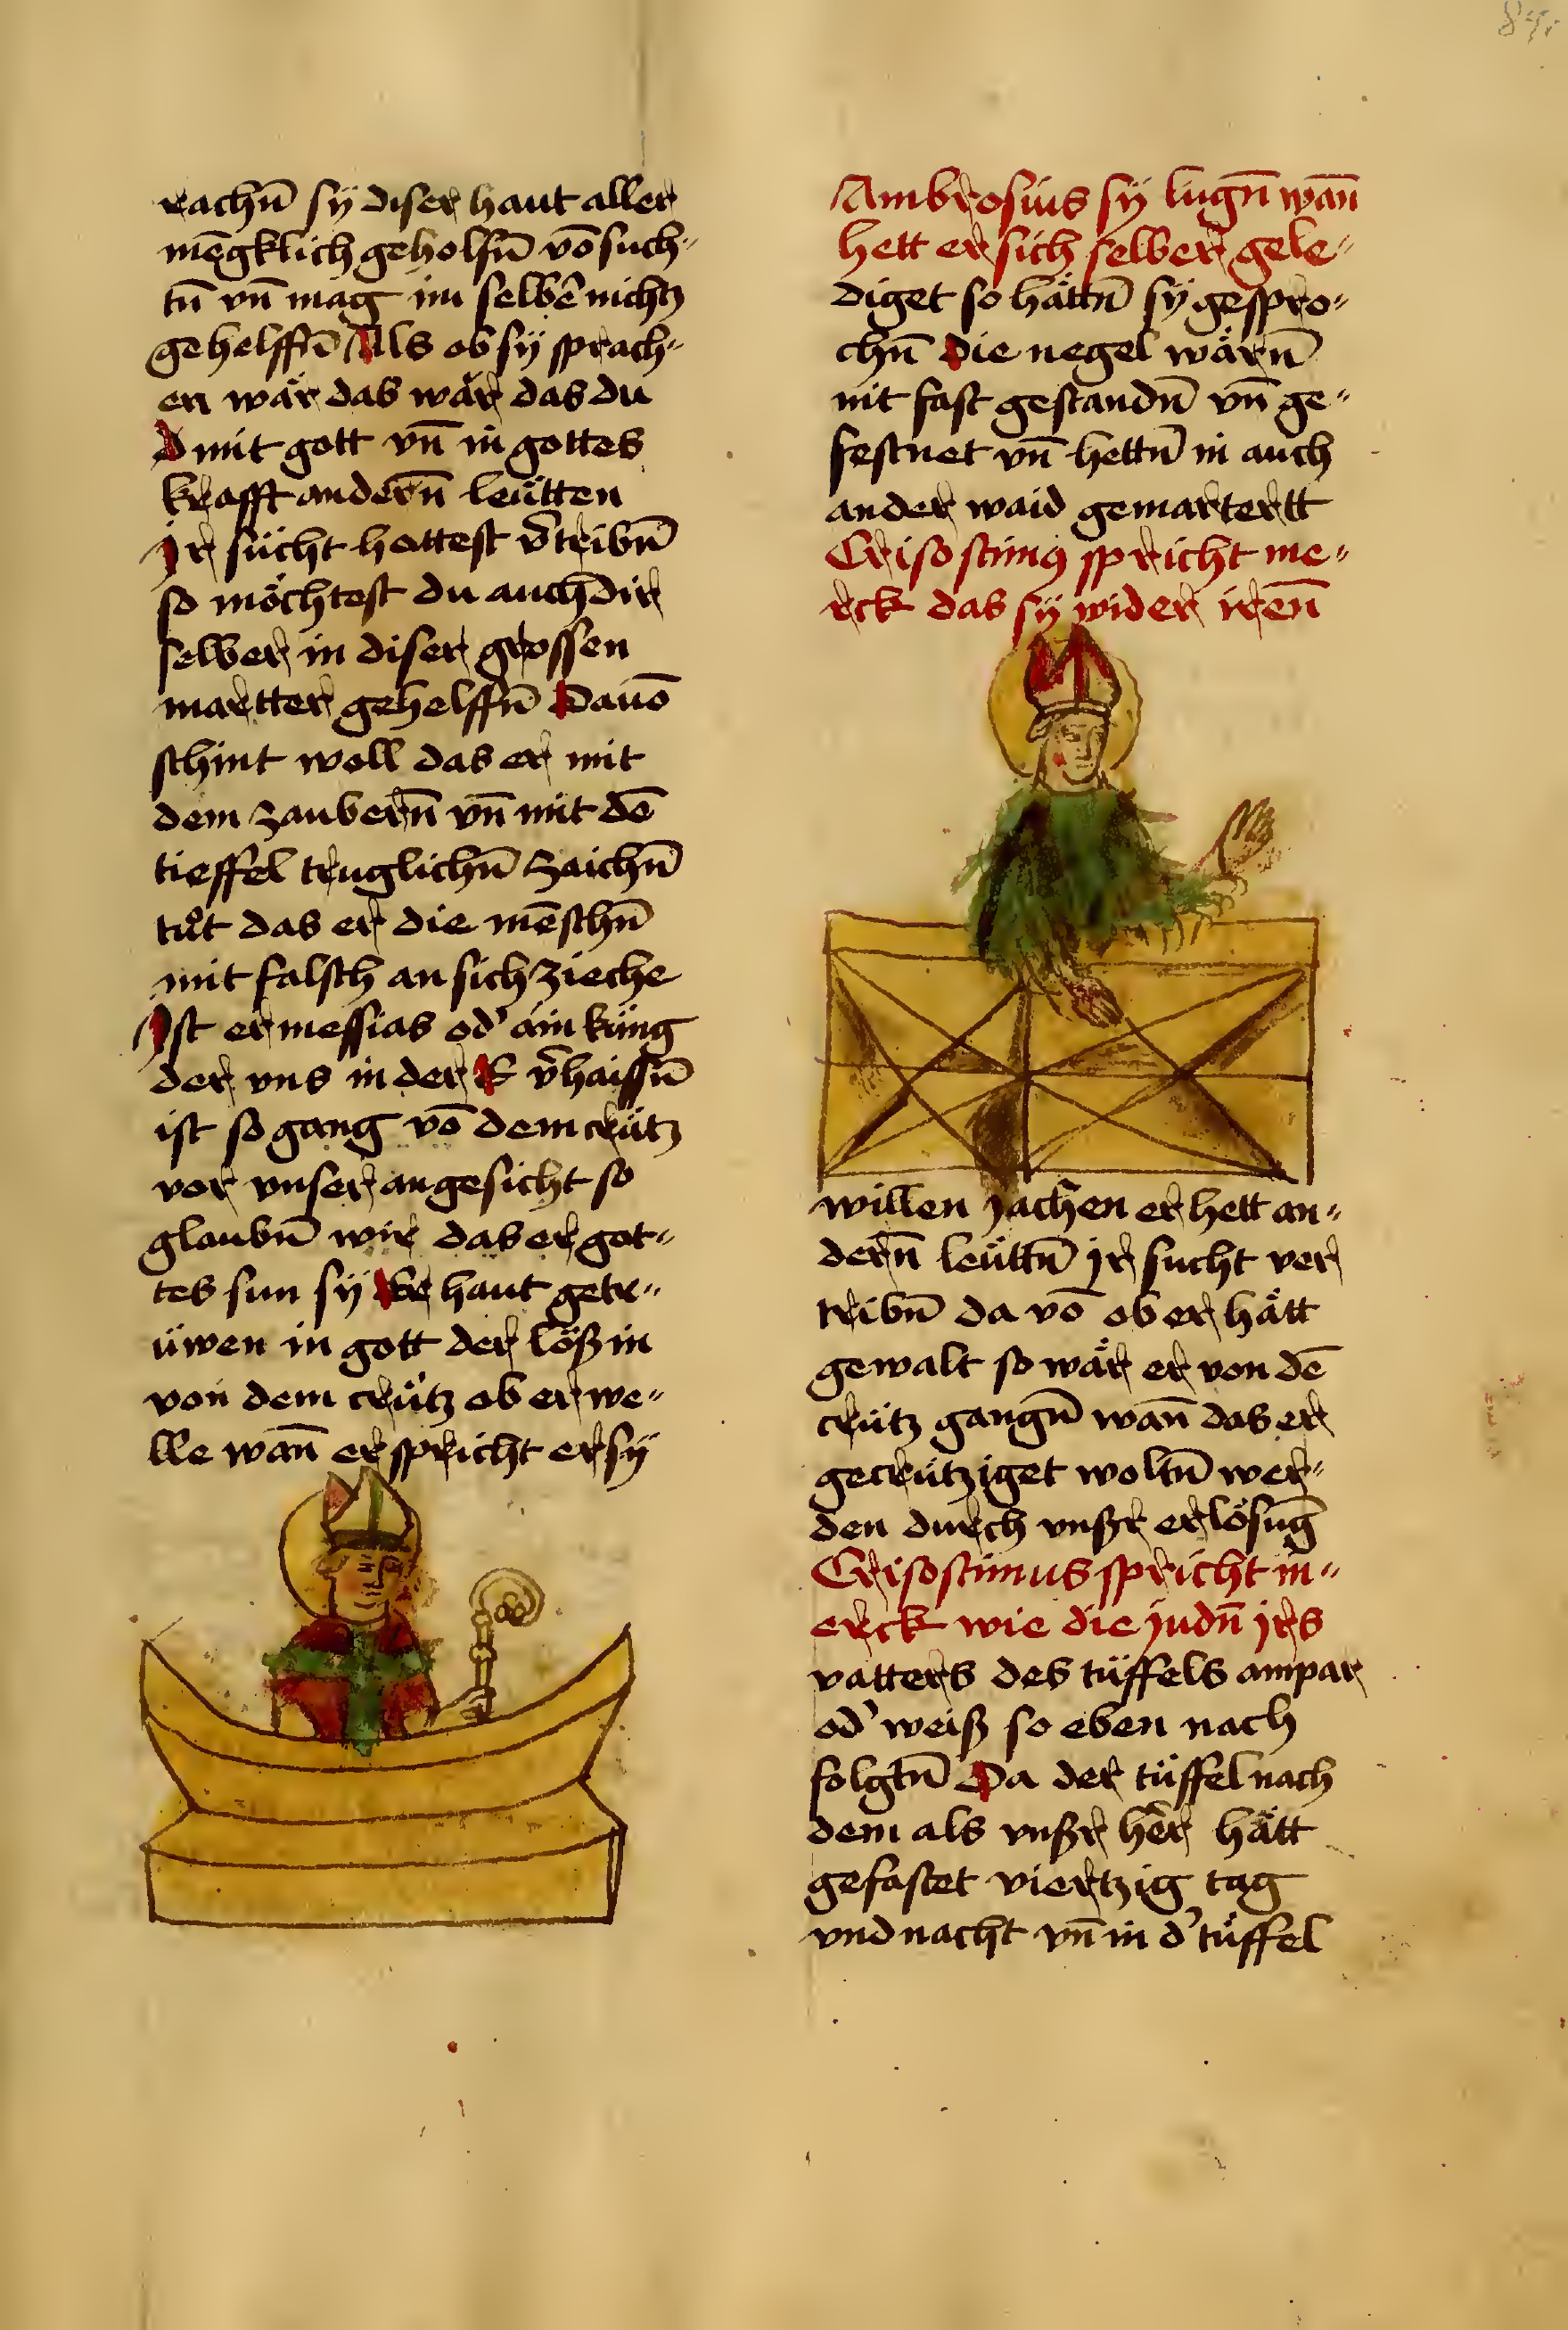 rachn̄ sÿ diser haut aller
mēgklich geholfn̄ vō such„
tn̄ vn̄ mag im selbē nichtz
gehelffn̄ Als ob sÿ sprach„
en wär das wär das du
d mit gott vn̄ in gottes
krafft andern̄ leütten
Jr sücht hattest v̄tribn̄
so möchtest du auch dir
selber in diser grossen
martter gehelffn̄ Dauō
schint woll das er mit
dem zaubern̄ vn̄ mit dē
tieffel truglichn̄ zaichn̄
tuͦt das er die mēschn̄
mit falsch an sich zieche
Jst er messias od' ain küng
der vns in der E v̄haissn̄
ist so gang vō dem crütz
vor vnser angesicht so
glaubn̄ wir das er got„
tes sun sÿ Er haut getr„
üwen in gott der löß in
von dem crütz ob er we„
lle wan̄ er spricht er sÿ
Ambrosius sÿ lugn̄ wan̄
hett er sich selber gele„
diget so hättn̄ sÿ gespro„
chn̄ die negel wärn̄
nit fast gestandn̄ vn̄ ge„
festnet vn̄ hettn̄ in auch
ander waid gemartertt
Crisostimꝰ spricht me„
rck das sÿ wider iren̄
willen jachen er hett an„
dern̄ leüttn̄ jr sucht ver
tribn̄ da vō ob er hätt
gewalt so wär er von dē
crütz gangn̄ wan̄ das er
gecrütziget woltn̄ wer„
den durch vnßr erlösuḡ
Crisostimus spricht m„
erck wie die judn̄ jrs
vatters des tüffels ampar
od' weiß so eben nach
folgtn̄ Da der tüffel nach
dem als vnßr hēr hätt
gefastet viertzig tag
vnd nacht vn̄ in d' tüffel